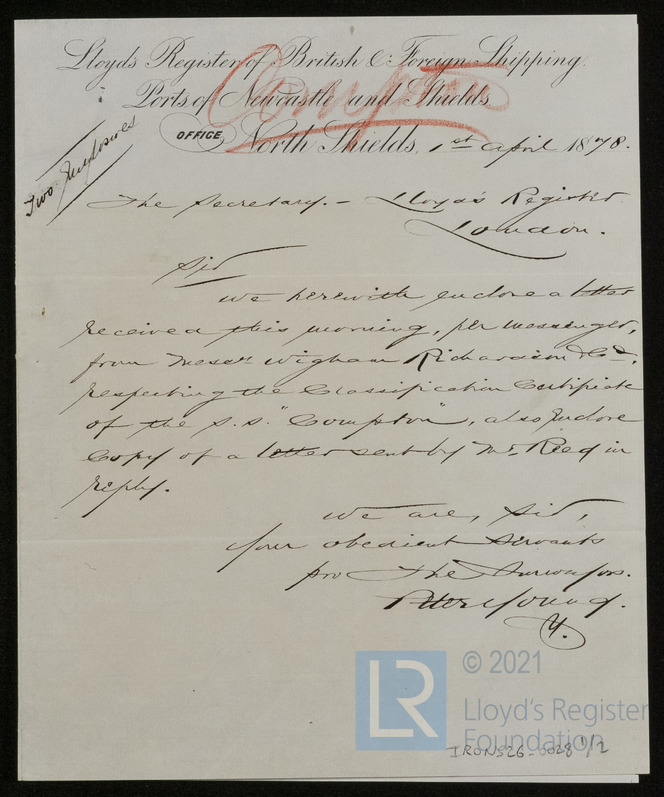 Lloyd's Register of British & Foreign Shipping.
Compton
Ports of Newcastle and Shields
OFFICE, North Shields, 1st April 1878.
Two Inclosures
The Secretary. - Lloyd's Register
London.
Sir
We herewith enclose a letter
received this morning, per messenger,
from Messrs Wigham Richardson & Co.,
respecting the Classification Certificate
of the S.S. "Compton", also Inclose
Copy of a letter sent by Mr. Reed in
reply.
We are, Sir,
Your obedient Servants
pro The Surveyors.
Peter Young.
Y.
LR
© 2021
Lloyd's Register
Foundation
IRONS26-0028 1/2